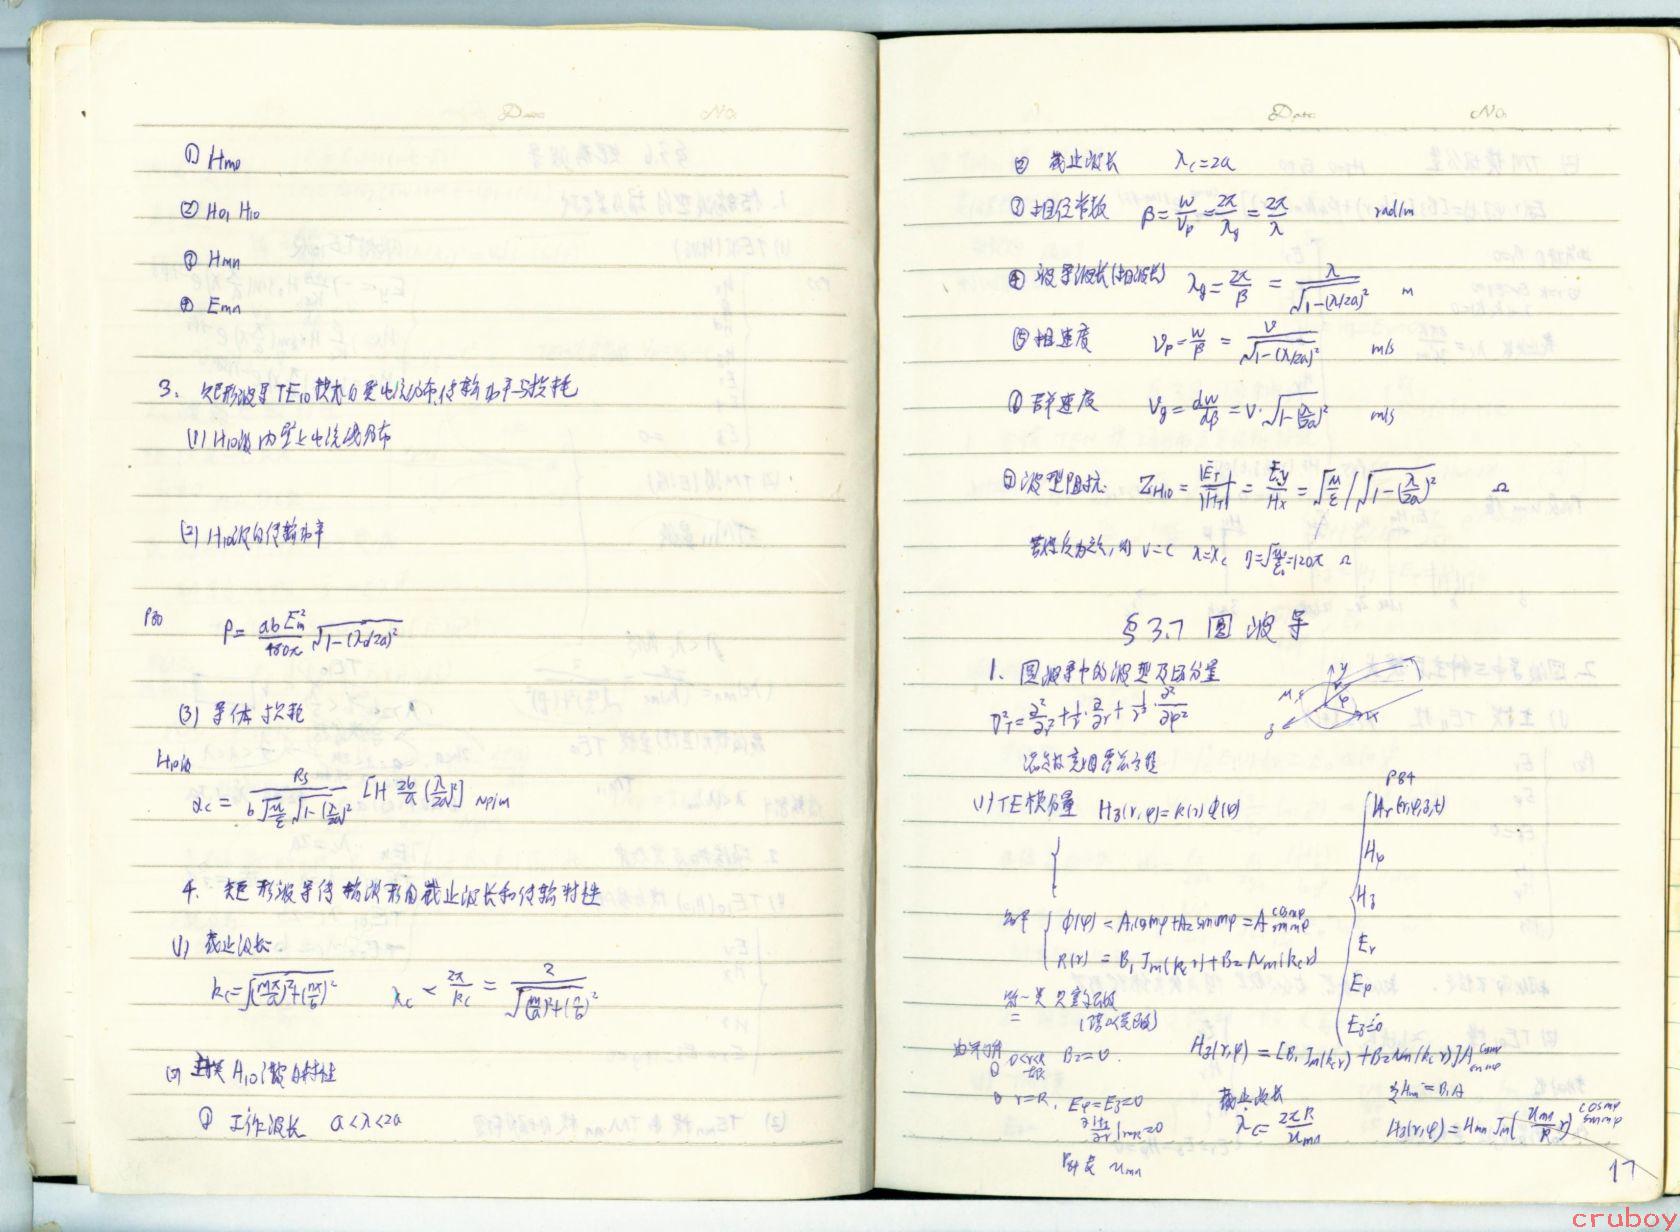 Date No.
① Hm0
② H01 H10
③ Hmn
④ Emn
3. 矩形波导TE10模内壁电流分布,传输功率与损耗
(1) H10波内壁上电流线分布
(2) H10波的传输功率
P80
P = abEm²/480π √1-(λ/2a)²
(3) 导体损耗
H10波
αc = Rs / b√μ/ε √1-(λ/2a)² [1+ 2b/a (λ/2a)²] Np/m
4. 矩形波导传输波形的截止波长和传输特性
(1) 截止波长
kc = √(mπ/a)²+(nπ/b)² λc = 2π/kc = 2/√(m/a)²+(n/b)²
(2) 主模H10波的特性
① 工作波长 a<λ<2a
Date No.
② 截止波长 λc=2a
③ 相位常数 β = w/Vp = 2π/λg = 2π/λ rad/m
④ 波导波长(相波长) λg = 2π/β = λ/√1-(λ/2a)² m
⑤ 相速度 Vp = w/β = v/√1-(λ/2a)² m/s
⑥ 群速度 Vg = dw/dβ = V·√1-(λ/2a)² m/s
⑦ 波型阻抗 ZH10 = |ET|/|HT| = Ey/Hx = √μ/ε / √1-(λ/2a)² Ω
V=C η=120π Ω
§3.7 圆波导
1. 圆波导中的波型及场分量
∇T² = ∂²/∂r² + 1/r · ∂/∂r + 1/r² · ∂²/∂φ²
(1) TE模分量 Hz(r,φ)=R(r)Φ(φ)
P84
Hr(r,φ,z,t)
Hφ
Hz
Er
Eφ
Ez=0
Φ(φ) = A1cosmφ+A2sinmφ = A cosmφ sinmφ
R(r) = B1Jm(kcr)+B2Nm(kcr)
第一类贝塞尔函数
0<r<R B2=0.
Hz(r,φ) = [B1Jm(kcr)+B2Nm(kcr)]A cosmφ sinmφ
r=R, Eφ=Ez=0
∂Hz/∂r |r=R=0
截止波长
λc = 2πR/umn
令Hmn=B1A
Hz(r,φ)=Hmn Jm(umn/R r) cosmφ sinmφ
umn
17
cruboy